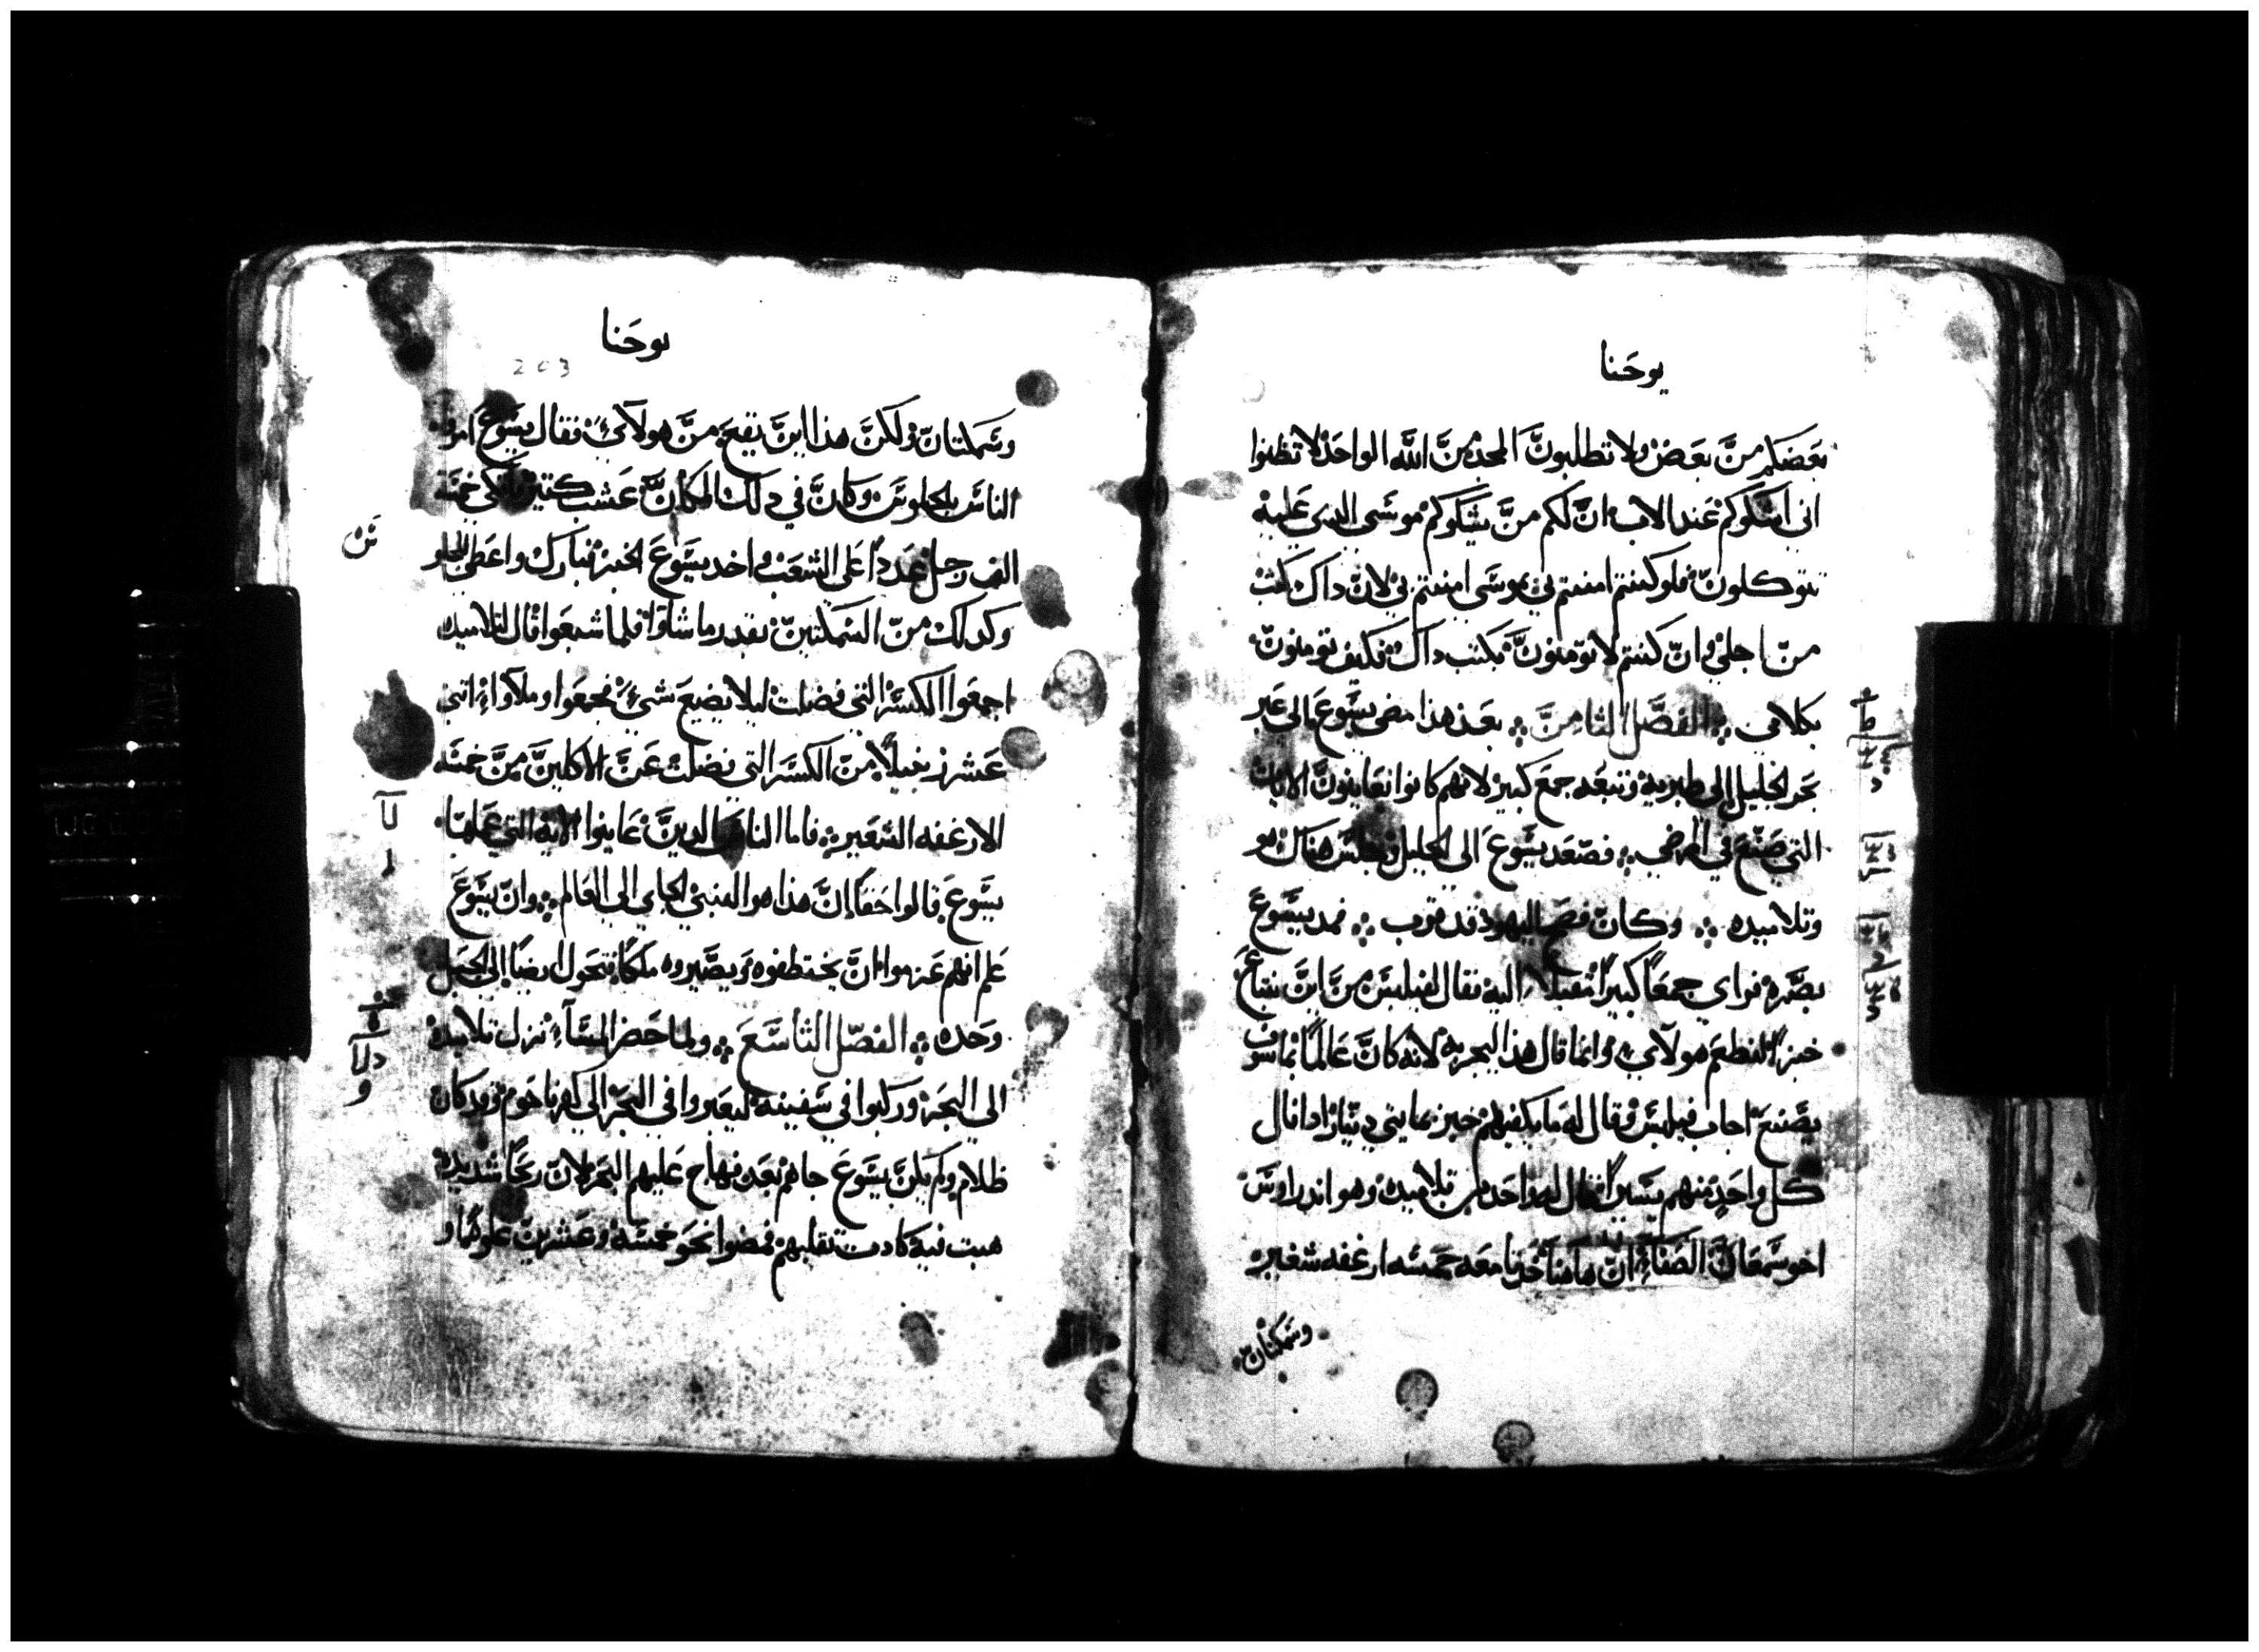 يوحَنا
بعَضكم منَّ بعَض ولا تطلبونَّ المجد منَّ الله الواحَد لا تظنوا
اني اشكوكم عَند الاب انَّ لكم منَّ يشكوكم موسَي الدي عَليه
تتوكلونَّ فلو كنتم امنتم بموسَي امنتم بي لانَّ داك كتب
منّ اجلي وانّ كنتم لا تومنونَّ بكتب داك فكيف تومنونّ
بكلامي ܀ الفصَّل الثامنَّ ܀ بعَد هذا مضي يسَّوعَ الي عَبر
بحَر الجليل الي طبريه وتبعَه جمعَ كبير لانهم كانوا يعَاينونَّ الايات
التي صَنعَ في المرضي ܀ فصَعَد يسَّوعَ الي الجليل وجلسَ هناك هو
وتلاميده ܀ وكانّ فصَح اليهود قد قرب ܀ فمد يسَّوعَ
بصَّره فراي جمعَاً كبيراً مقبلاً اليه فقال لفيلبسَّ منَّ اينَّ نبتاعَ
خبزاً لنطعَم هولآي وانما قال هذا ليجربه لانه كانَّ عَالماً بما سَوف
يصَّنعَ اجاب فيلبسَّ وقال له ما يكفيهم خبز بمايتي دينار ادا نال
كل واحَد منهم يسَيراً فقال له واحَد من تلاميده وهو اندراوسَّ
اخو سَّمعَانَّ الصَفاءِ انَّ هاهنا حَدثا معَه خمسَّه ارغفه شعَير
وسَمكتانّ
يوحَنا
203
وسَّمكتانّ ولكنَّ هذا اينَّ يقعَ منَّ هولآيِ فقال يسَّوعَ امروا
الناسَ بالجلوسَ وكانَّ في دلك المكانَّ عَشب كتير فاتكي خمسَّة
الف رجل عَددًا علي الشعَب واخد يسَّوعَ الخبز فبارك واعَطي الجلو
وكدلك منّ السَّمكتينّ بقدر ما شاوا فلما شبعَوا قال لتلاميده
اجمعَوا الكسَّر التي فضلت ليلا يضيعَ شيٌ فجمعَوا وملآوا اتني
عَشر زنبيلاً منّ الكسَر التي فضلت عَنَّ الاكلينَّ منَّ خمسَّه
الارغفه الشعَير ܀ فاما الناسَ الدينَّ عَاينوا الايه التي عَملها
يسَّوعَ قالوا حَقاً انَّ هذا هو النبي الجاي الي العَالم ܀ وانّ يسَّوعَ
عَلم انهم عَزموا انَّ يختطفوه ويصَّيروه ملكاً فتحَول ايضاً الي الجبل
وحَده ܀ الفصَّل التاسَّعَ ܀ ولما حَضر المسَّآءِ نزل تلاميده
الي البحَر وركبوا في سَّفينه ليعَبروا في البحَر الي كفرناحَوم وقد كان
ظلام ولم يكنَّ يسَّوعَ جاهم بعَد فهاج عَليهم البحَر لانّ ريحَاً شديده
هبت فيه كادت تقلبهم فمضوا نحَو خمسَّه وعَشرينّ غلوه او